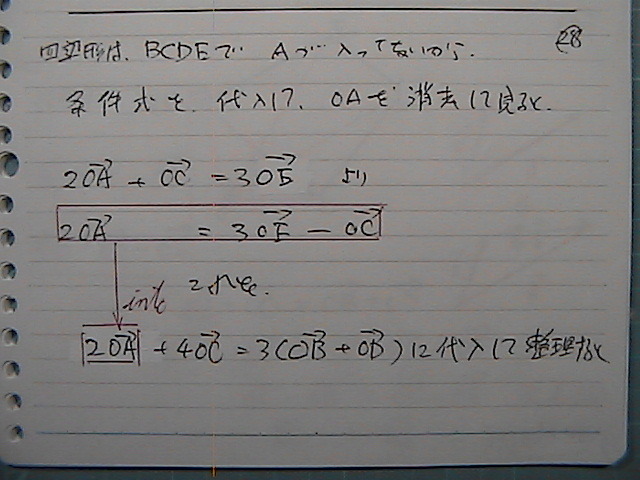 28
四辺形は、BCDEで Aが入ってないから.
条件式を、代入して、OAを消去して見ると、
2OA→ + OC→ = 3OE→ より
2OA→ = 3OE→ - OC→
into これを、
2OA→ + 4OC→ = 3(OB→ + OD→) に代入して整理すると